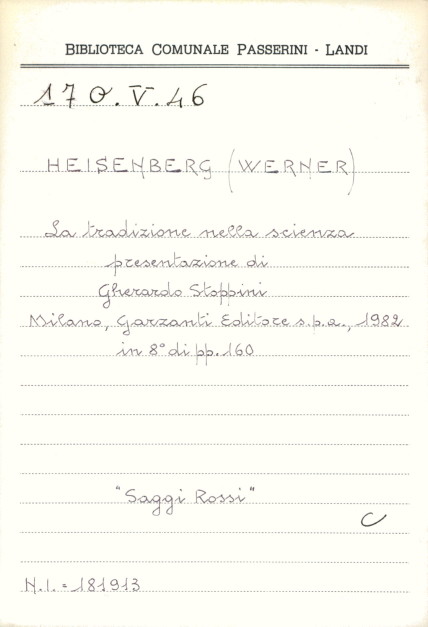 BIBLIOTECA COMUNALE PASSERINI - LANDI
170.V.46
HEISENBERG (WERNER)
La tradizione nella scienza
presentazione di
Gherardo Stoppini
Milano, Garzanti Editore s.p.a., 1982
in 8° di pp. 160
"Saggi Rossi"
C
N.I. = 181913